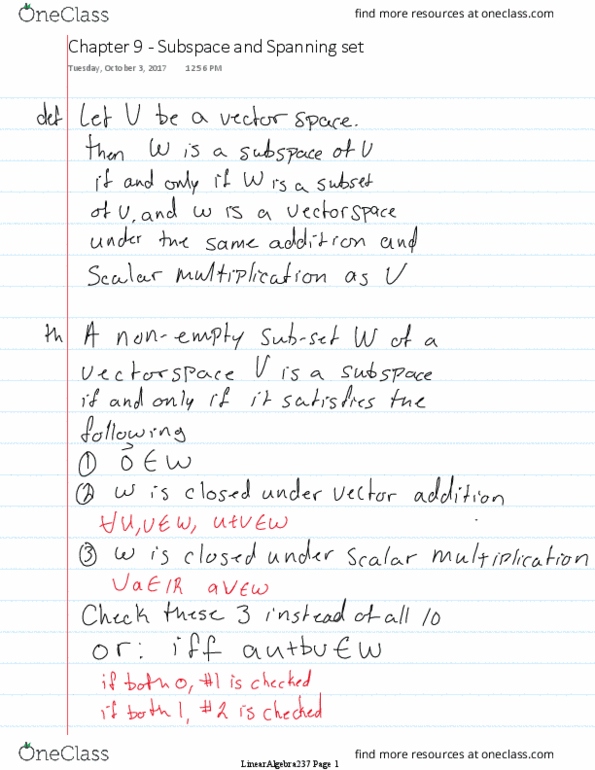 OneClass find more resources at oneclass.com
Chapter 9 - Subspace and Spanning set
Tuesday, October 3, 2017 12:56 PM
def Let V be a vector space.
then W is a subspace of V
if and only if W is a subset
of V, and W is a vectorspace
under the same addition and
Scalar multiplication as V
th A non-empty sub-set W of a
vectorspace V is a subspace
if and only if it satisfies the
following
① 0⃗ ∈ W
② W is closed under vector addition
∀ U,V ∈ W, U+V ∈ W
③ W is closed under scalar multiplication
∀ a ∈ IR aV ∈ W
Check these 3 instead of all 10
or: iff au+bv ∈ W
if both 0, #1 is checked
if both 1, #2 is checked
OneClass find more resources at oneclass.com
LinearAlgebra237 Page 1